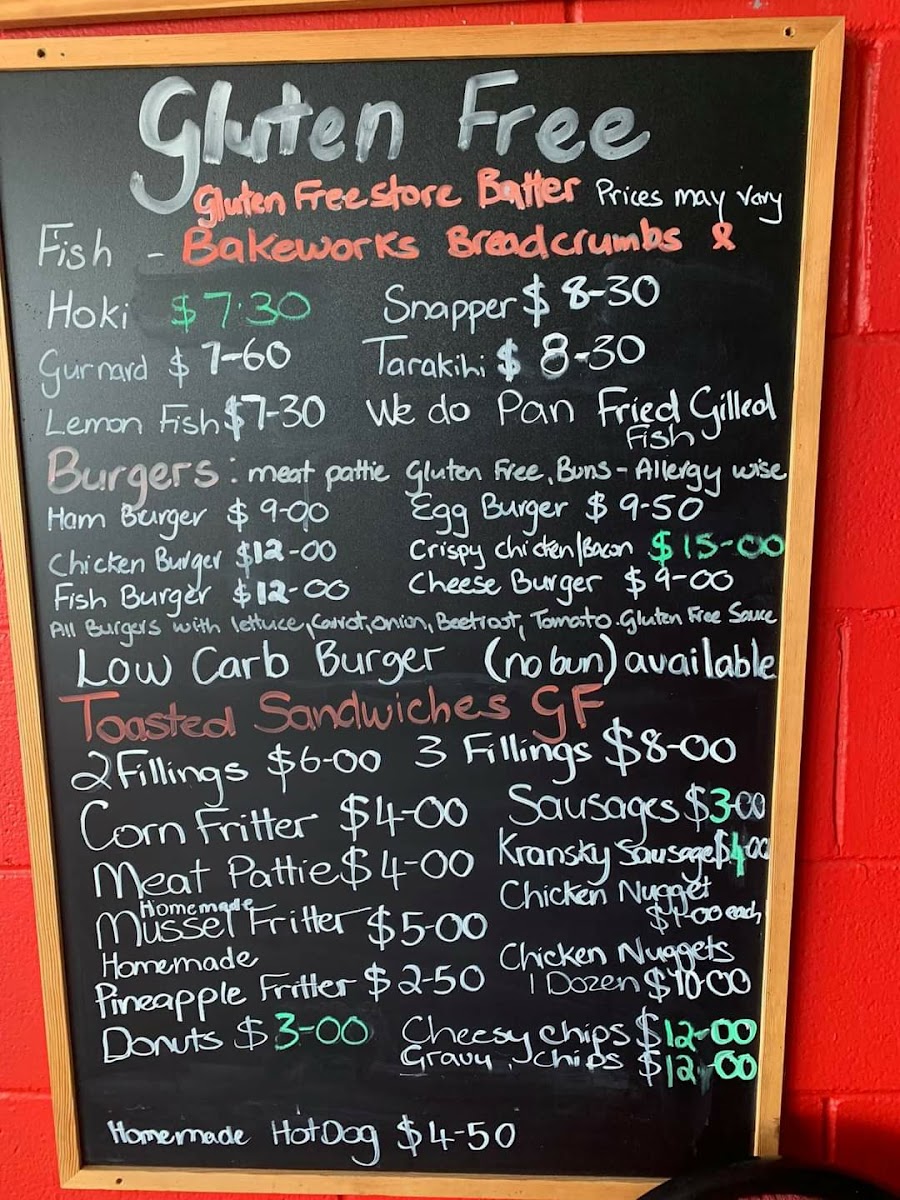 Gluten Free
Gluten Free store Batter Prices may vary
Fish - Bakeworks Breadcrumbs &
Hoki $7.30 Snapper $ 8-30
Gurnard $ 7-60 Tarakihi $ 8-30
Lemon Fish $7-30 We do Pan Fried Gilled
Fish
Burgers: meat pattie gluten Free, Buns - Allergy wise
Ham Burger $ 9-00 Egg Burger $ 9-50
Chicken Burger $12-00 Crispy chicken/Bacon $15-00
Fish Burger $12-00 Cheese Burger $ 9-00
All Burgers with lettuce, Carrot, Onion, Beetroot, Tomato. Gluten Free Sauce
Low Carb Burger (no bun) available
Toasted Sandwiches GF
2 Fillings $6-00 3 Fillings $8-00
Corn Fritter $4-00 Sausages $3-00
Meat Pattie $4-00 Kransky Sausage $4-00
Homemade Chicken Nugget
Mussel Fritter $5-00 $1-00 each
Homemade Chicken Nuggets
Pineapple Fritter $2-50 1 Dozen $10-00
Donuts $3-00 Cheesy chips $12-00
Gravy, chips $12-00
Homemade HotDog $4-50